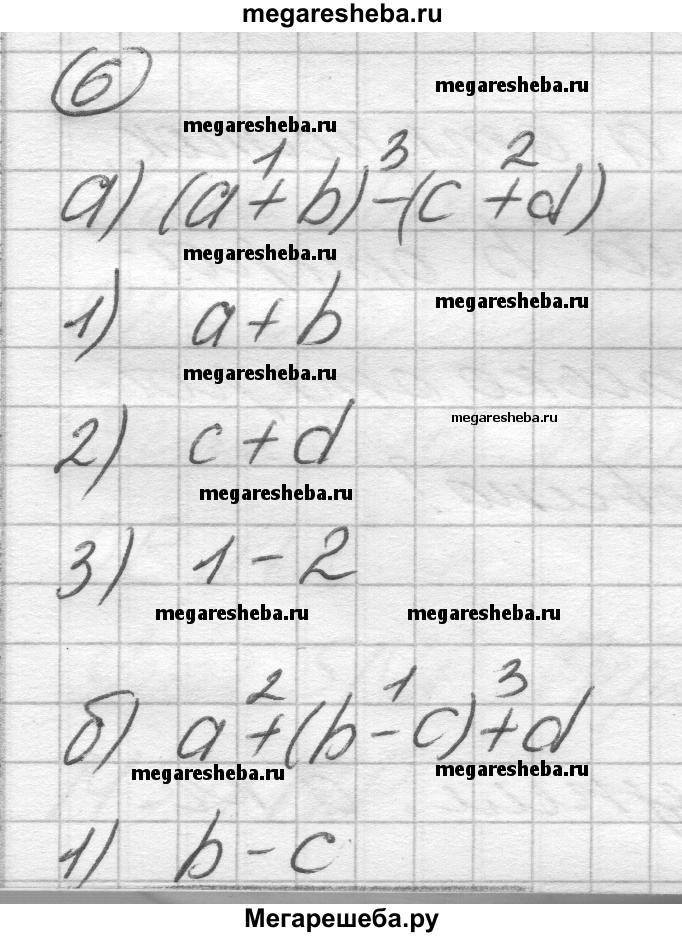 megaresheba.ru
6
megaresheba.ru
megaresheba.ru
1 3 2
а) (a + b) - (c + d)
megaresheba.ru
1) a + b
megaresheba.ru
megaresheba.ru
2) c + d
megaresheba.ru
megaresheba.ru
3) 1 - 2
megaresheba.ru megaresheba.ru
2 1 3
б) a + (b - c) + d
megaresheba.ru megaresheba.ru
1) b - c
Мегарешеба.ру